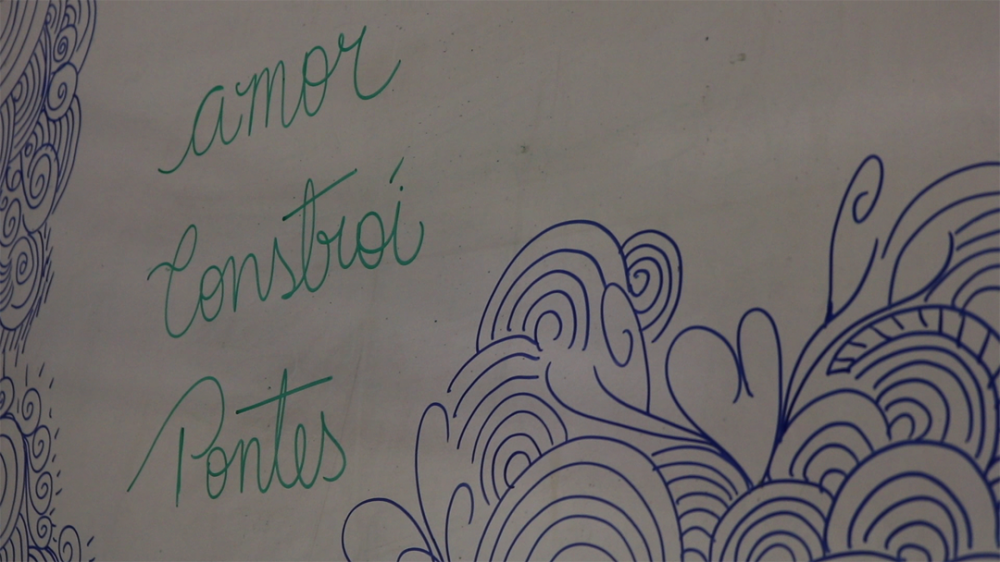 amor
Constrói
Pontes